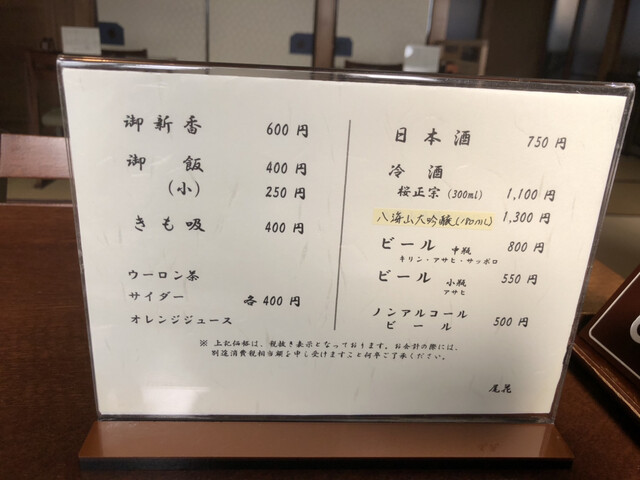 御新香 600円
御飯 400円
(小) 250円
きも吸 400円
ウーロン茶
サイダー 各400円
オレンジジュース
日本酒 750円
冷酒
桜正宗(300ml) 1,100円
八海山大吟醸(180ml) 1,300円
ビール 中瓶 800円
キリン・アサヒ・サッポロ
ビール 小瓶 550円
アサヒ
ノンアルコール
ビール 500円
※ 上記価格は、税抜き表示となっております。お会計の際には、
別途消費税相当額を申し受けますこと何卒ご了承ください。
尾花